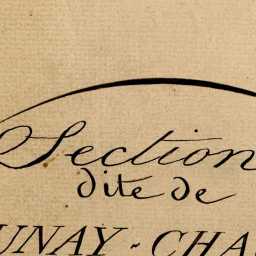 Section
dite de
UNAY-CHA